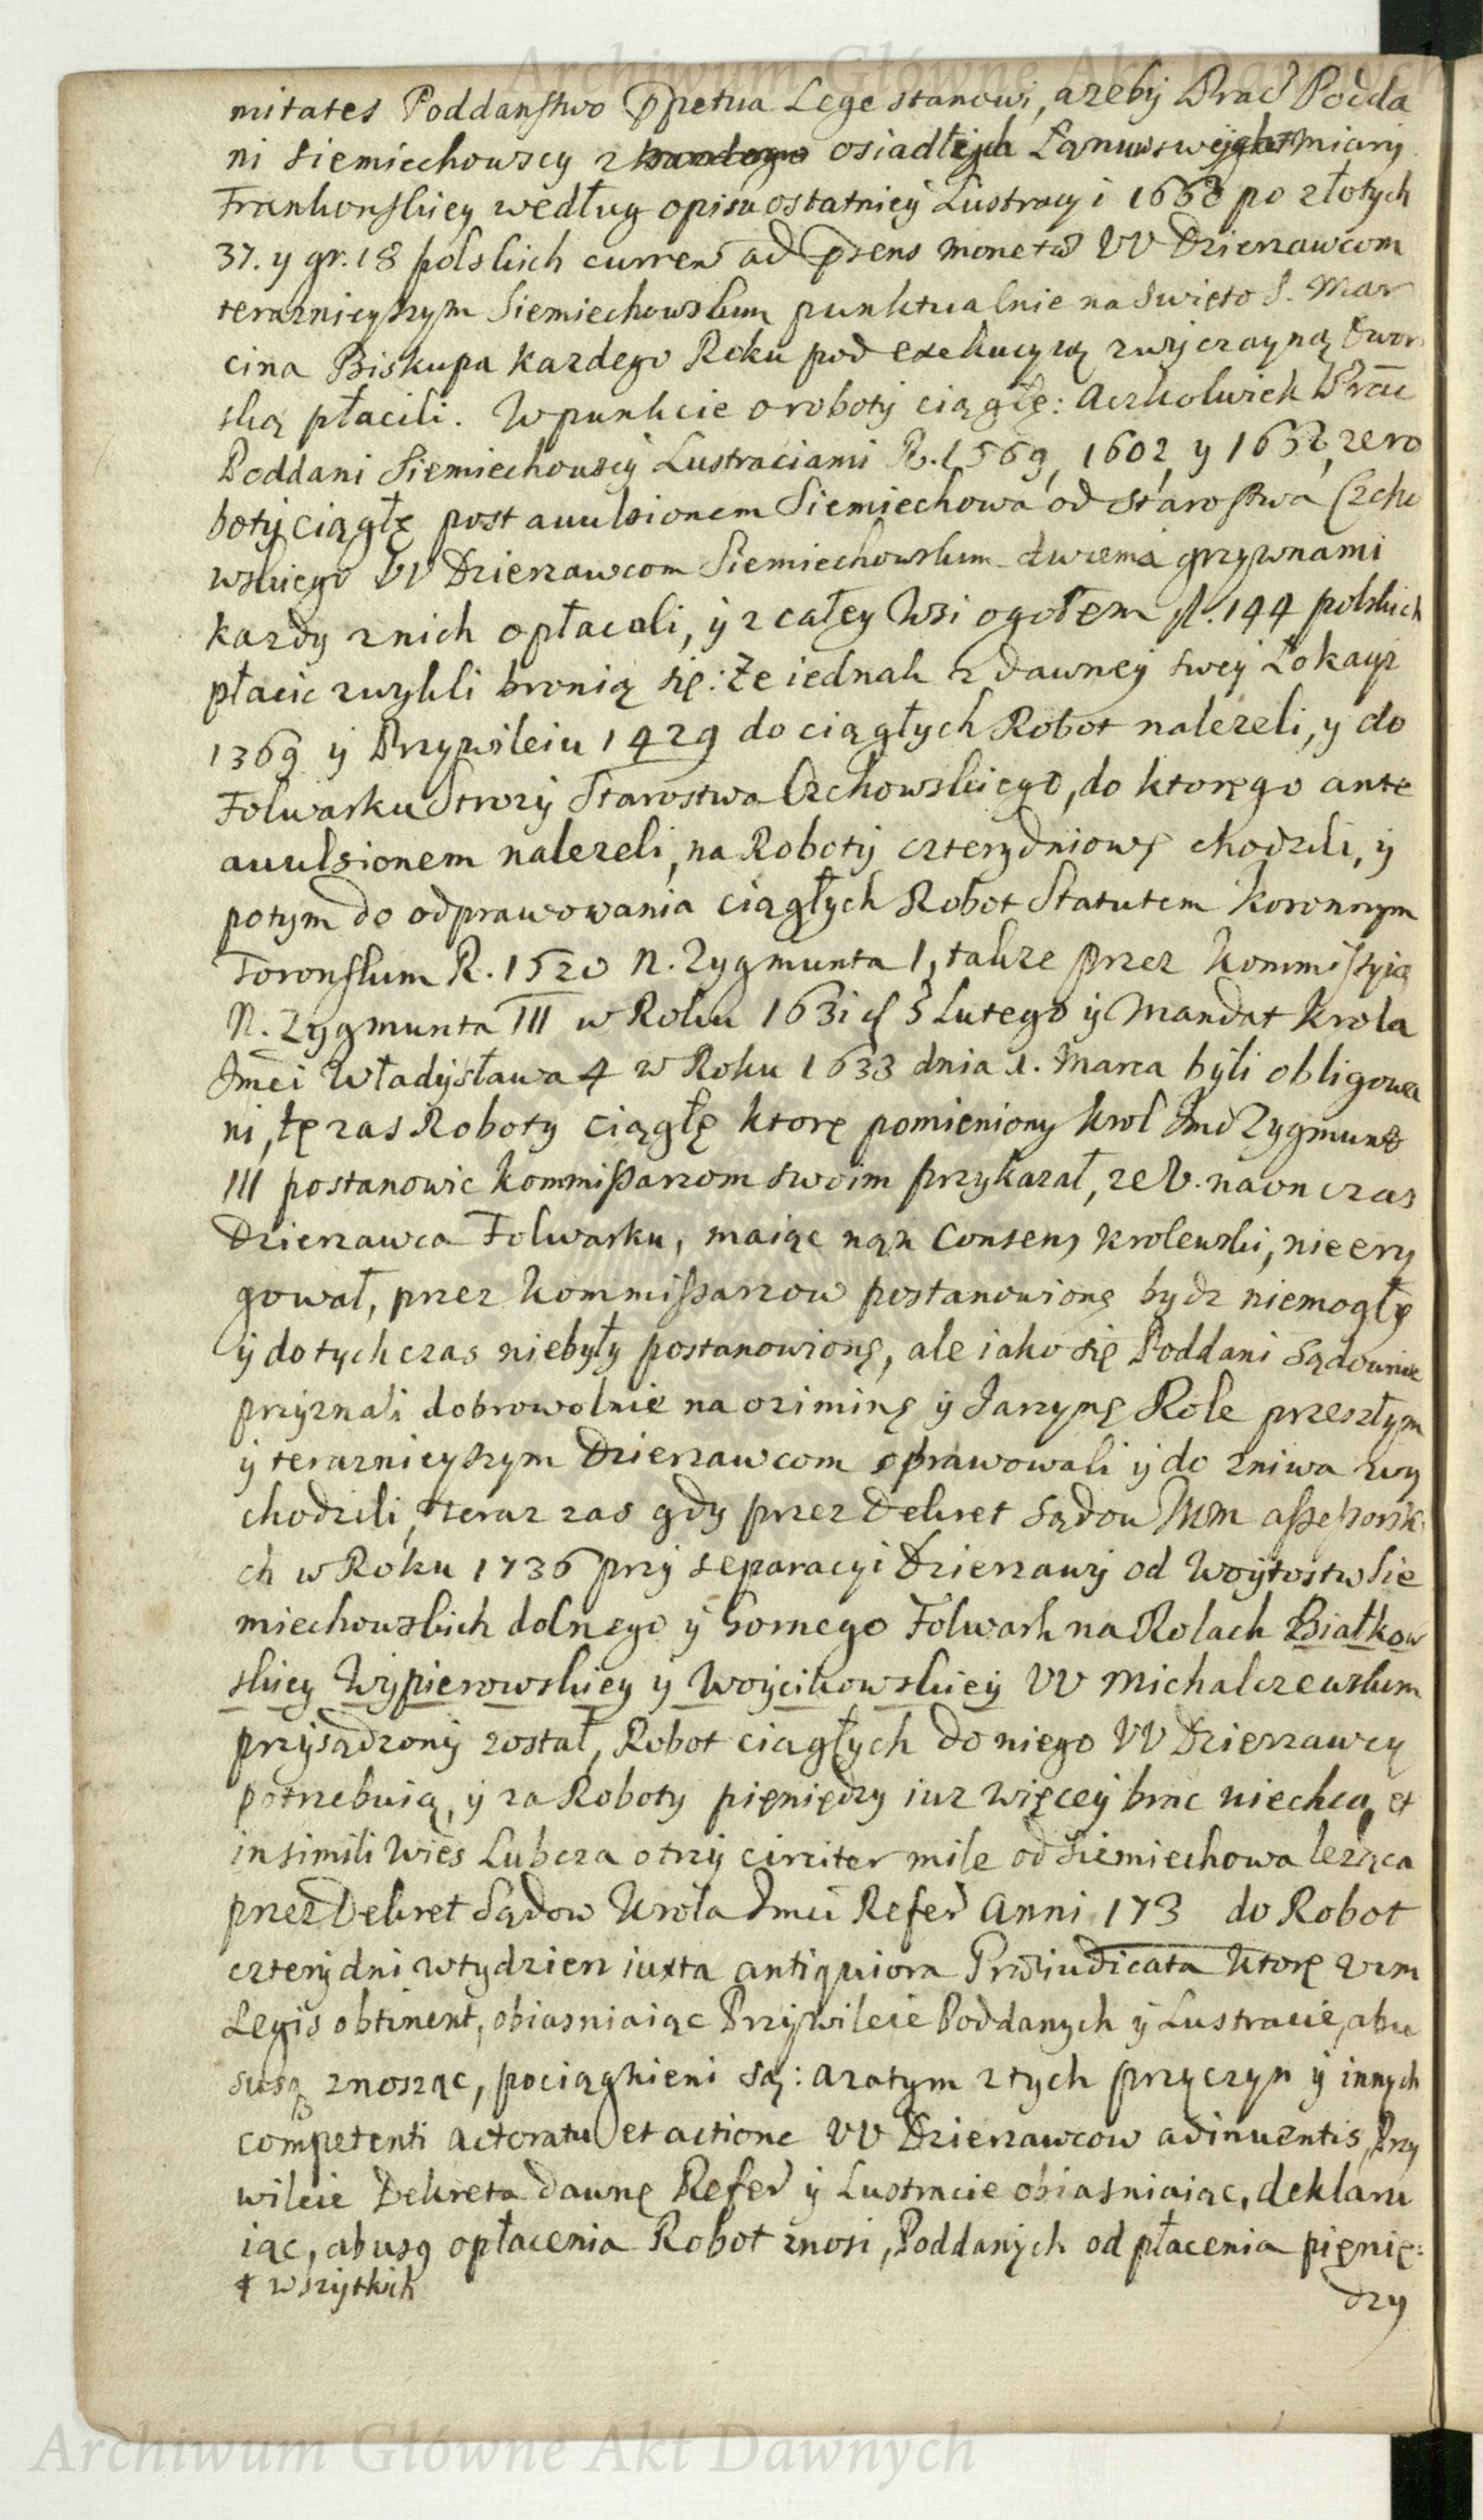 Archiwum Główne Akt Dawnych
mitates Poddaństwo ꝑpetua Lege stanowi, azeby Prac̃ Podda
ni Siemiechowscy z kazdego osiadłych Łanuw swych miary
Frankonskiey według opisu ostatniey Lustracyi 1660 po złotych
37. y gr. 18 polskich curren̄ ad p̃sens moneta VV Dzierzawcom
teraznieyszym Siemiechowskim punktualnie na Swięto S. Mar
cina Biskupa kazdego Roku pod exekucyą zwyczayną Dwor
ską płacili. W punkcie o roboty ciągłę: Aczkolwiek Prac̃
Poddani Siemiechowscy Lustraciami R. 1569, 1602, y 1632, ze ro
boty ciągłę post auulsionem Siemiechowa od Starostwa Czcho
wskiego VV Dzierzawcom Siemiechowskim dwiema grzywnami
kazdy z nich opłacali, y z całey Wsi ogołem fl. 144 polskich
płacic zwykli bronią się: Ze iednak z dawney swey Lokacyi
1369 y Przywileiu 1429 do ciągłych Robot nalezeli, y do
Folwarku Strozy Starostwa Czchowskiego, do ktorego ante
auulsionem nalezeli, na Roboty czterydniowę chodzili, y
potym do odprawowania ciągłych Robot Statutem Koronnym
Toronskim R. 1520 N. Zygmunta I, takze przez Kommissyią
N. Zygmunta III w Roku 1631 d 3 Lutego y Mandat Krola
Jmci Władysława 4 w Roku 1633 dnia 1. Marca byli obligowa
ni, tę zas Roboty ciągłę ktorę pomieniony Krol Jmć Zygmunt
III postanowic Kommissarzom swoim przykazał, ze V. na on czas
Dzierzawca Folwarku, maiąc nań Consens krolewski, nie ery
gował, przez Kommissarzow postanowionę bydz niemogłę
y dotychczas niebyły postanowionę, ale iako się Poddani Sądownie
przyznali dobrowolnie na oziminę y Jarzynę Role przeszłym
y teraznieyszym Dzierzawcom oprawowali y do zniwa wy
chodzili, teraz zas gdy przez Dekret Sądow Nrm assessorsk
ch w Roku 1736 przy separacyi Dzierzawy od Woytostw Sie
miechowskich dolnego y Gornego Folwark na Rolach Białkow
skiey Wypierowskiey y Woycikowskiey VV Michalczewskim
przysądzony został, Robot ciągłych do niego VV Dzierzawcy
potrzebuią, y za Roboty pięniędzy iuz więcey brac niechcą, et
in simili Wies Lubcza o trzy circiter mile od Siemiechowa leząca
przez Dekret Sądow Krola Jmci Refer̃ Anni 173 do Robot
cztery dni w tydzien iuxta antiquiora Præiudicata ktorę vim
Legis obtinent, obiasniaiąc Przywileie Poddanych y Lustracie, abu
susą znosząc, pociągnieni są: a zatym z tych przyczyn y innych
competenti Actoratu et actione VV Dzierzawcow adinventis, Przy
wileie Dekreta dawnę Refer̃ y Lustracie obiasniaiąc, deklaru
iąc, abusę opłacenia Robot znosi, Poddanych od płacenia pięnię:
ɸ wszytkich
dzy
Archiwum Główne Akt Dawnych